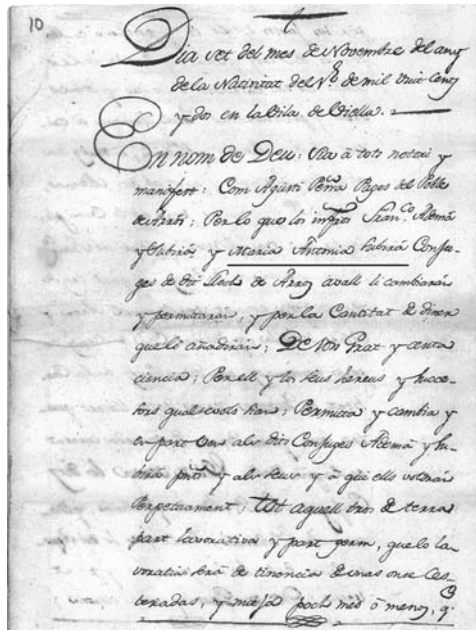 10
Dia set del mes de Novembre del any
de la Nativitat del Sr. de mil vuit cents
y dos en la Vila de Viella.
En nom de Deu: Sia à tots notori y
manifest: Com Agusti Peña Pages del Poble
de Arròs; Per lo que los infrits Franco. Ademà
y Subirà y Maria Antonia Subirà Conju-
ges de dit Lloch de Arros avall li cambiaràn
y permutaràn, y por la Cantitat de diner
que li añadiràn; De Mon Grat y certa
ciencia; Per ell y los seus hereus y succe-
sors qualsevols sian; Permuta y cambia y
en part als dits Conjuges Ademà y Su-
birà pnts. y als seus y à qui ells voldràn
Perpetuament: tot aquell tros de terra
part lavorativa y part germ, que lo la-
voratiu serà de tinencia de unas onse Ces-
teradas, y mitja poch mes ò menos, q.